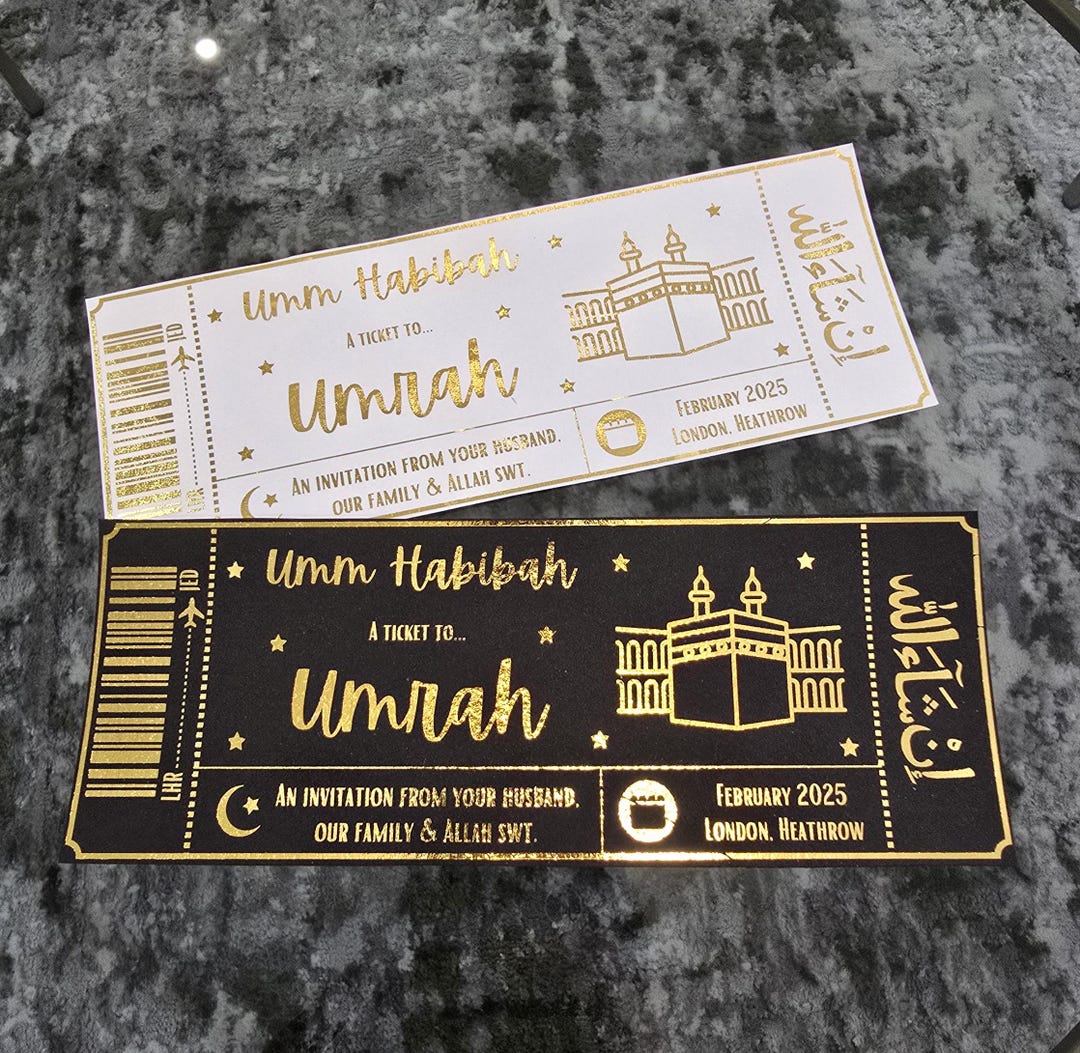 Umm Habibah
A TICKET TO...
Umrah
AN INVITATION FROM YOUR HUSBAND,
OUR FAMILY & ALLAH SWT.
FEBRUARY 2025
LONDON, HEATHROW
JED
إِنْ شَآءَ اللّٰه
Umm Habibah
A TICKET TO...
Umrah
AN INVITATION FROM YOUR HUSBAND,
OUR FAMILY & ALLAH SWT.
FEBRUARY 2025
LONDON, HEATHROW
JED
LHR
إِنْ شَآءَ اللّٰه